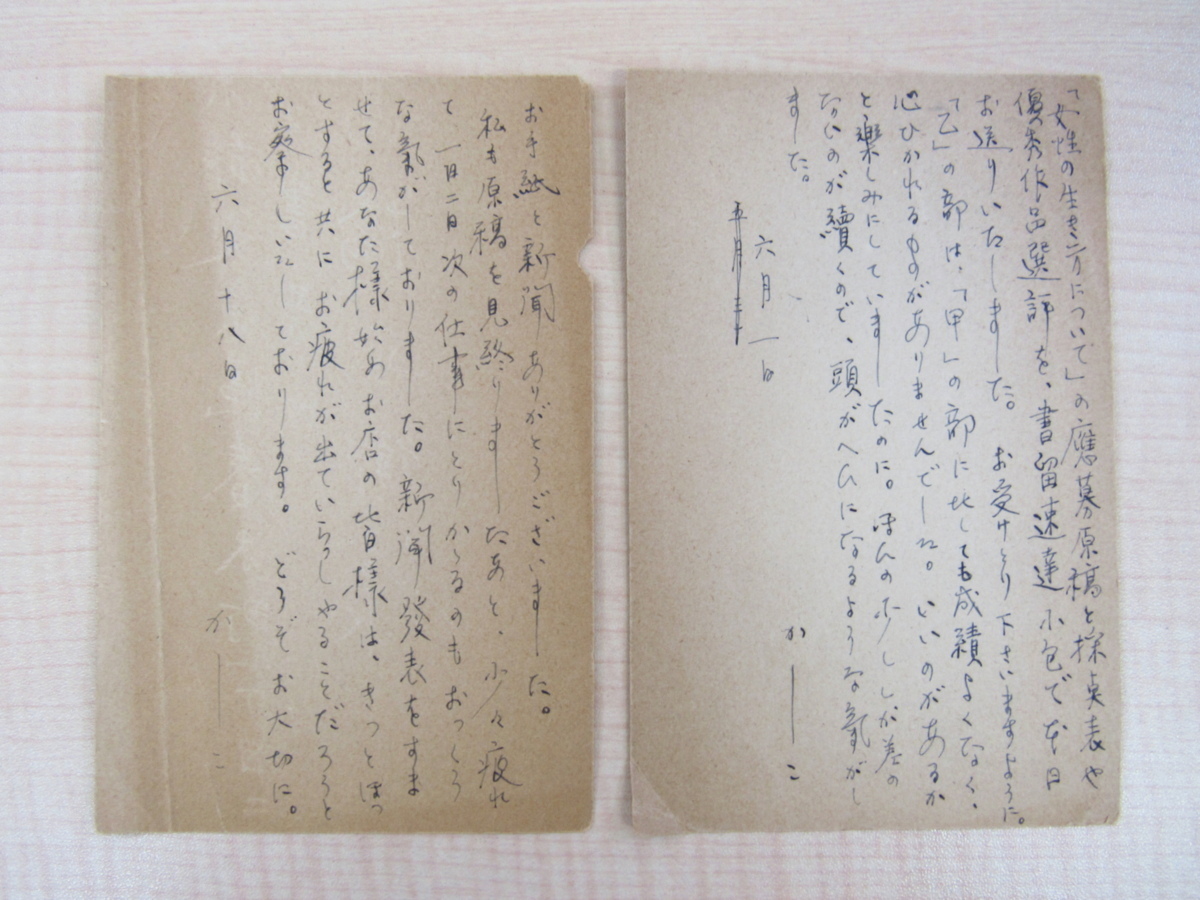 「女性の生き方について」の應募原稿と採点表や
優秀作品選評を、書留速達小包で本日
お送りいたしました。 お受けとり下さいますように。
「乙」の部は、「甲」の部に比しても成績よくなく、
心ひかれるものがありませんでした。いいのがあるか
と樂しみにしていましたのに。ほんの少ししか差の
ないのが續くので、頭がヘンになるような氣がし
ました。
六月一日
かしこ
お手紙と新聞ありがとうございました。
私も原稿を見終りましたあと、少々疲れ
て、一日二日次の仕事にとりかゝるのもおっくう
な氣がしておりました。新聞發表をすま
せて、あなた様始めお店の皆様は、きっとほっ
とすると共にお疲れが出ていらっしやることだろうと
お察ししております。 どうぞお大切に。
六月十八日
かしこ